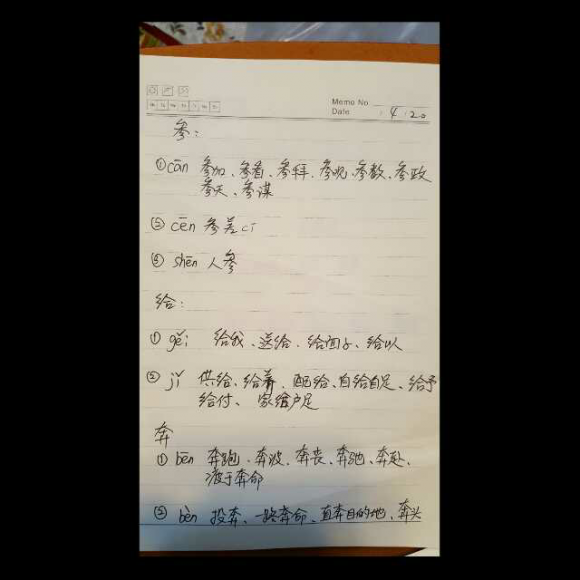 Memo No.
Date 4 · 20
参：
① cān 参加、参看、参拜、参观、参数、参政
参天、参谋
② cēn 参差
③ shēn 人参
给：
① gěi 给我、送给、给面子、给以
② jǐ 供给、给养、配给、自给自足、给予
给付、家给户足
奔
① bēn 奔跑、奔波、奔丧、奔驰、奔赴、
疲于奔命
② bèn 投奔、一路奔命、直奔目的地、奔头